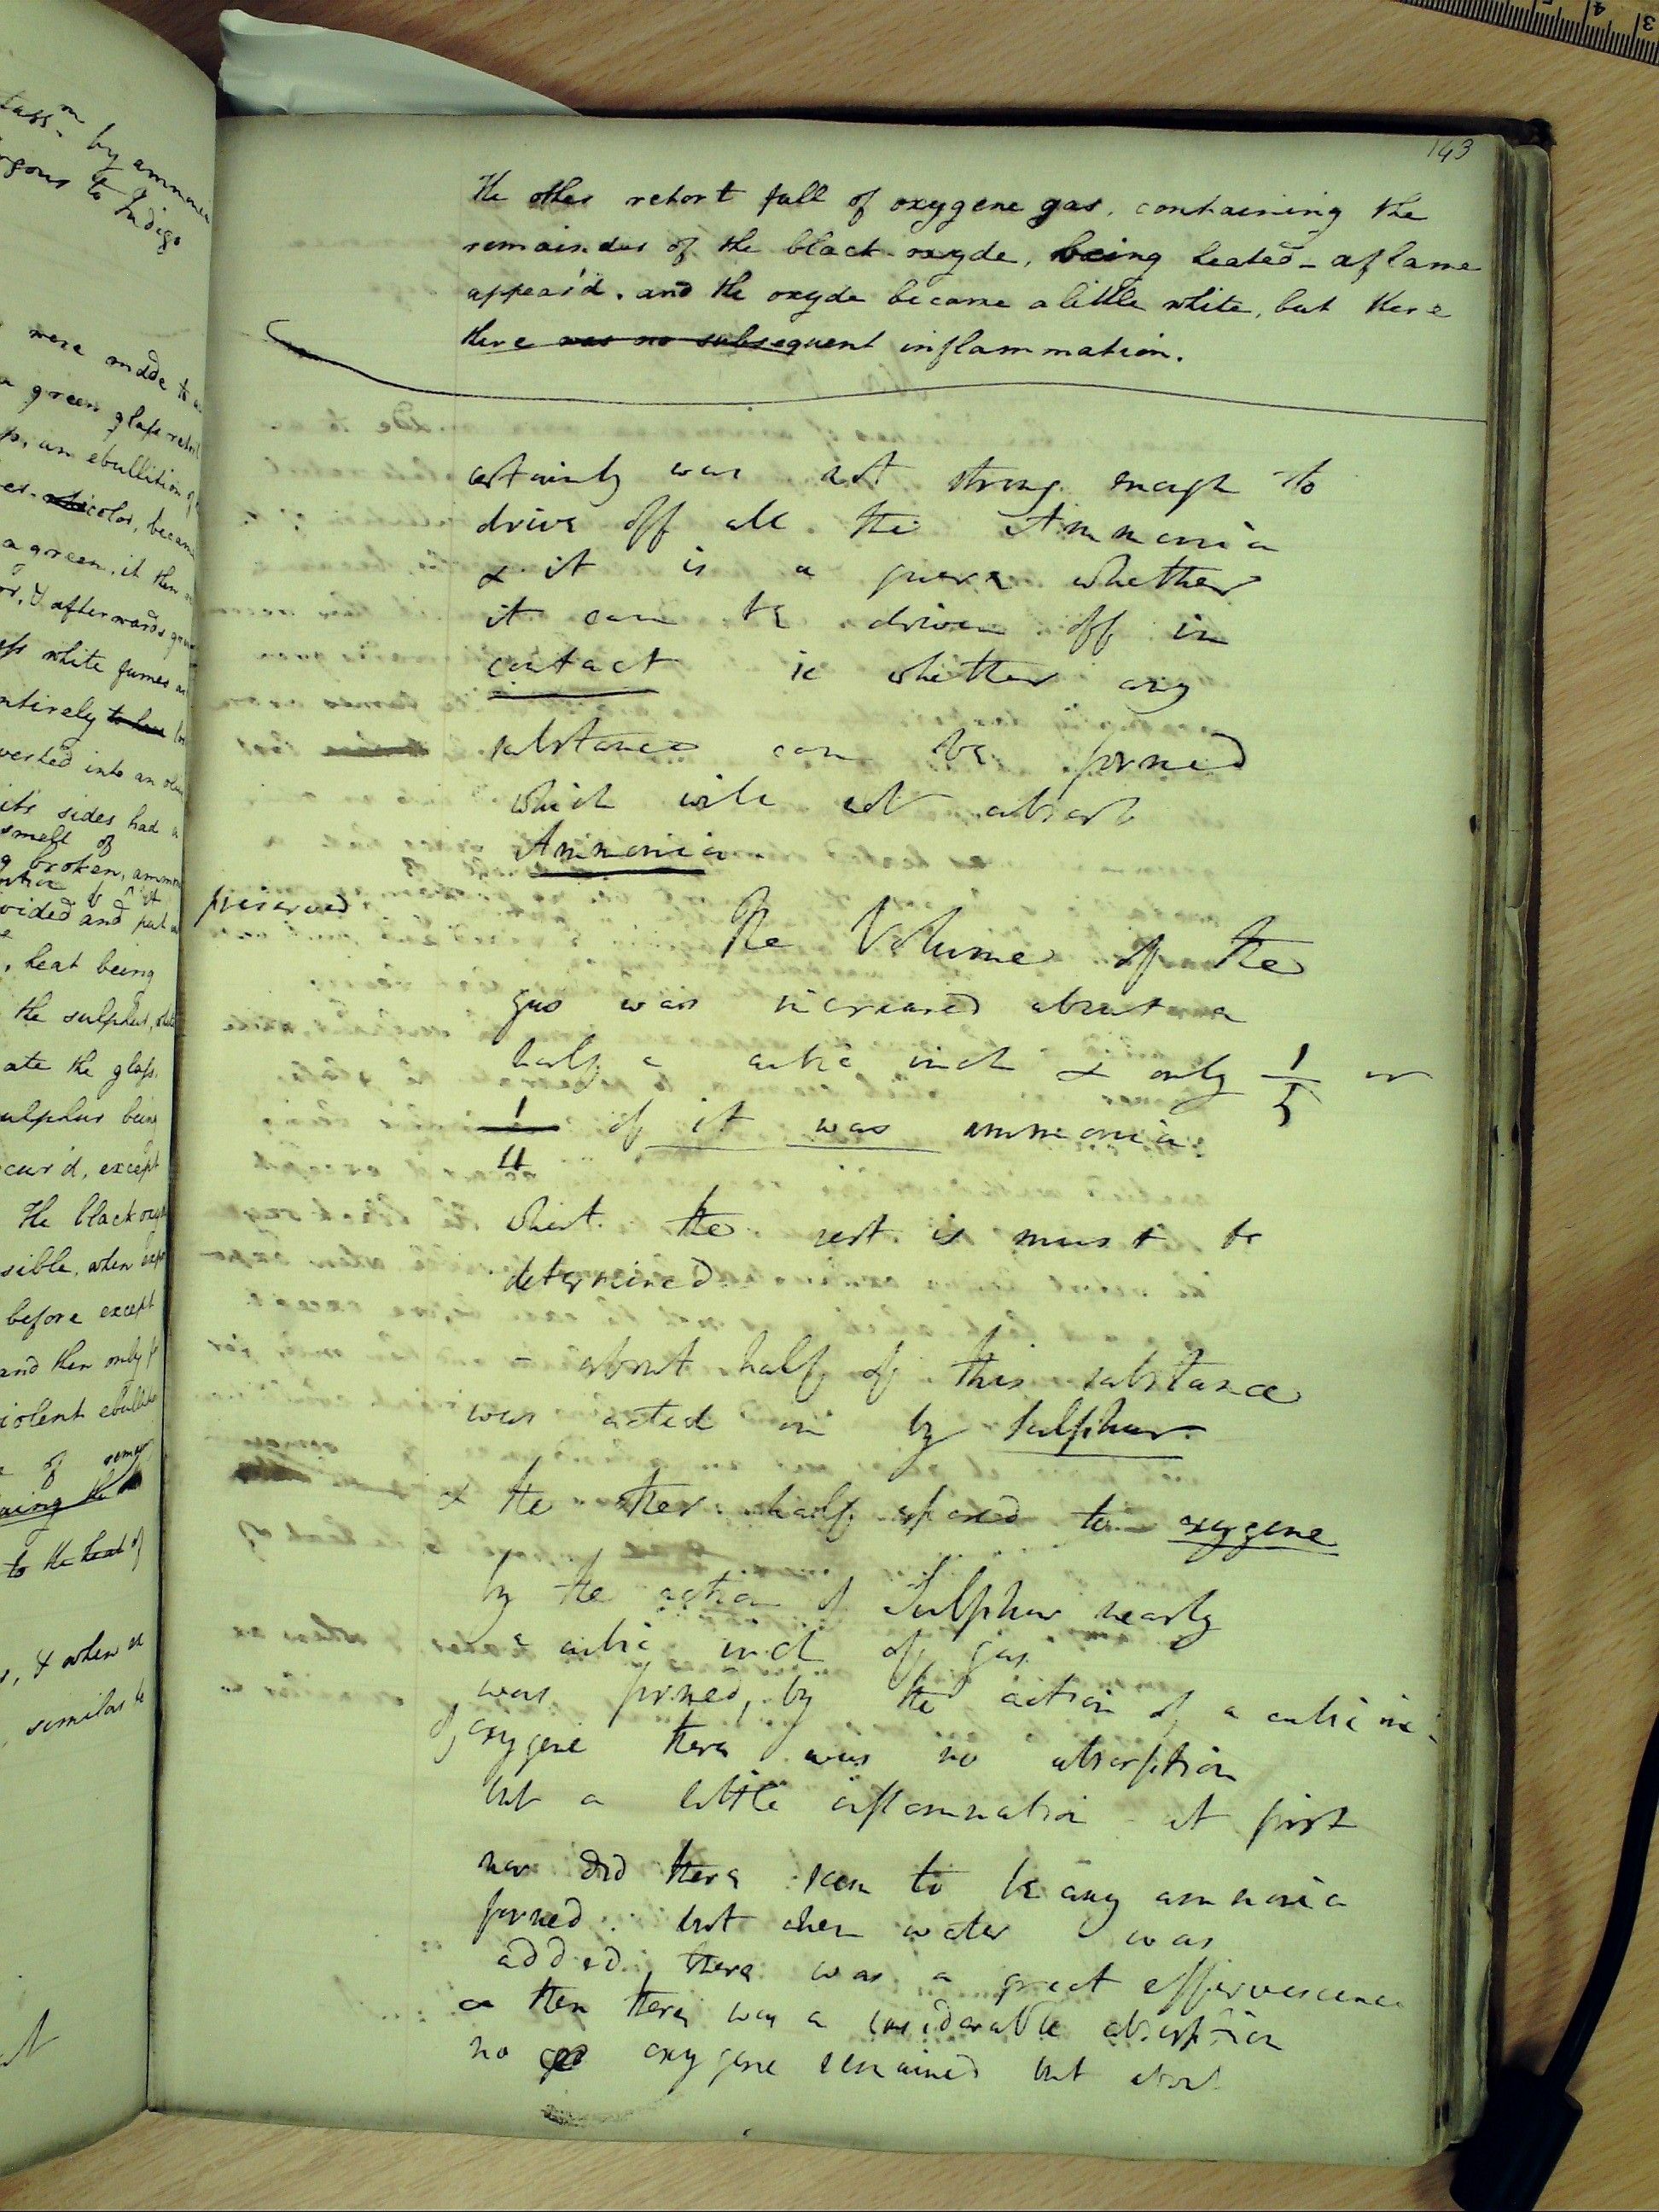 143
The other retort full of oxygene gas, containing the
remainder of the black oxyde, being heated - a flame
appear'd. and the oxyde became a little white, but there
there was no subsequent inflammation.
certainly was not strong enough to
drive off all the Ammonia
& it is a quere whether
it can be driven off in
contact ie whether any
substance can be formed
which will not absorb
Ammonia
preserved
The Volume of the
gas was increased about a
half a cubic inch & only 1/5 or
1/4 of it was ammonia
What the rest is must be
determined.
- about half of this substance
was acted on by Sulphur.
& the other half exposed to oxygene
by the action of Sulphur nearly
a cubic inch of gas
was formed, by the action of a cubic in:
of oxygene there was no absorption
but a little inflammation at first
nor did there seem to be any ammonia
formed. but when water was
added, there was a great effervescence
& then there was a considerable absorption
no oxygene remained but about
tass.m by ammonia
to Indigo
were made to
a green glass retort
p, an ebullition of
color, became
a green, it then
or, & afterwards
white fumes
ntirely to have
verted into an
its sides had a
smell of
g broken,
vided and put
, heat being
the sulphur,
ate the glass.
ulphur being
cur'd, except
The black
sible, when
before except
and then only
iolent
of
to the heat of
s, & when
similar to